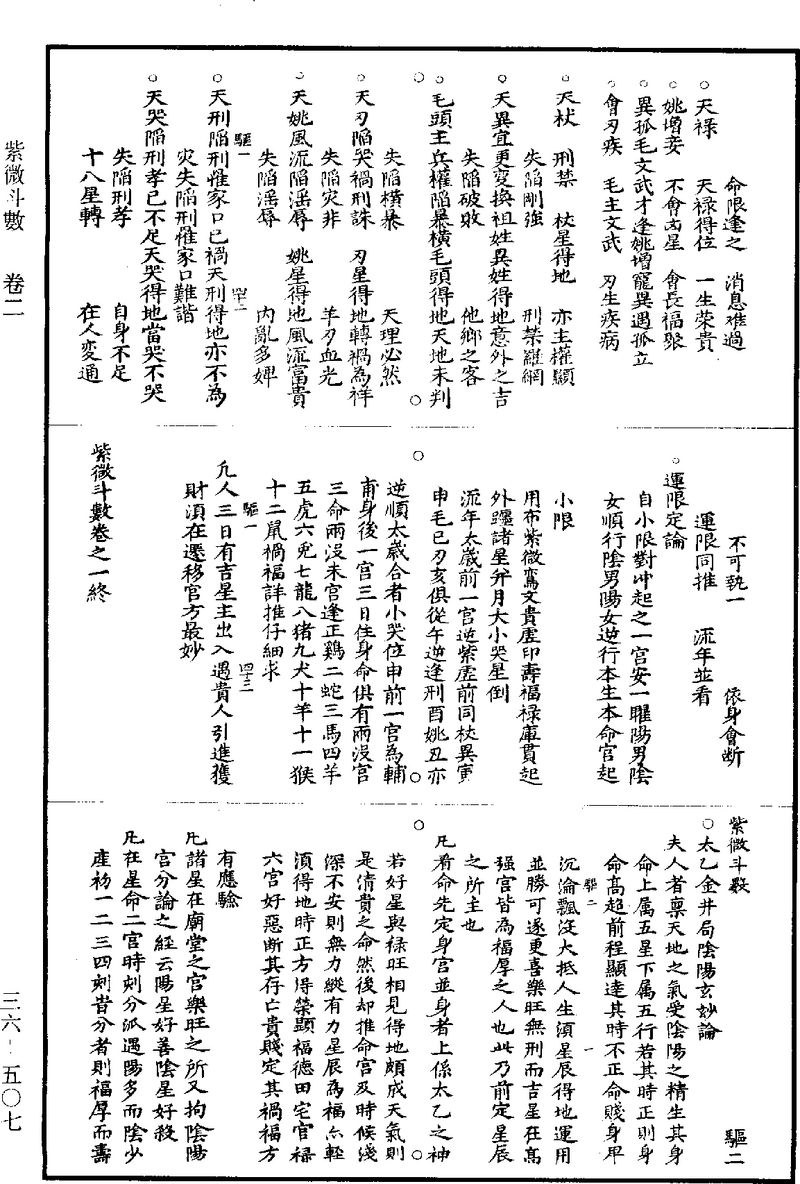 紫微斗數　卷二
三六－五〇七
命限逢之　消息难過
○天祿　天祿得位　一生荣貴
○姚增妾　不會凶星　會長福眾
○異孤毛文武才逢姚增寵異遇孤立
○會刃疾　毛主文武　刃生疾病
○天杖　刑禁　杖星得地　亦主權顯
失陷剛強　刑禁羅網
○天異宜更変換祖姓異姓得地意外之吉
失陷破敗　他鄉之客
○毛頭主兵權陷暴橫毛頭得地天地未判
失陷橫暴　天理必然
○天刃陷哭禍刑誅　刃星得地轉禍為祥
失陷灾非　羊刃血光
○天姚風流陷滛辱　姚星得地風流富貴
失陷滛辱　內亂多婢
驅一　四二
○天刑陷刑惟家口已禍天刑得地亦不為
灾失陷刑惟家口難諧
○天哭陷刑孝已不足天哭得地當哭不哭
失陷刑孝　自身不足
十八星轉　在人变通
不可執一　依身會断
運限同推　流年並看
○運限定論
自小限對冲起之一宮安一曜陽男陰
女順行陰男陽女逆行本生本命宮起
小限
用布紫微鸞文貴虛印壽福祿庫貫起
外躔諸星并月大小哭星倒
流年太歲前一宮逆紫虛前同杖異寅
申毛巳刃亥俱從午逆逢刑酉姚丑亦
逆順太歲合者小哭位申前一宮為輔
甫身後一宮三日住身命俱有兩沒宮
三命兩沒未宮逢正鷄二蛇三馬四羊
五虎六兎七龍八猪九犬十羊十一猴
十二鼠禍福詳推仔細求
驅一　四三
凢人三日有吉星主出入遇貴人引進獲
財湏在遷移官方最妙
紫微斗數卷之一終
紫微斗數　驅二
○太乙金井局陰陽玄妙論
夫人者禀天地之氣受陰陽之精生其身
命上属五星下属五行若其時正則身
命髙超前程顯達其時不正命賤身卑
驅二　一
沉淪飄沒大抵人生湏星辰得地運用
並勝可逐更喜樂旺無刑而吉星在髙
强宮皆為福厚之人也此乃前定星辰
之所主也
凡看命先定身宮並身者上係太乙之神
若好星與祿旺相見得地頗成天氣則
是清貴之命然後却推命宮及時候淺
深不安則無力縱有力星辰為福亦輕
湏得地時正方得榮顯福德田宅官祿
六宮好惡断其存亡貴賤定其禍福方
有應驗
凡諸星在廟堂之宮樂旺之所又拘陰陽
宮分論之経云陽星好善陰星好殺
凡在星命二宮時刻分派遇陽多而陰少
産初一二三四刻昔分者則福厚而壽